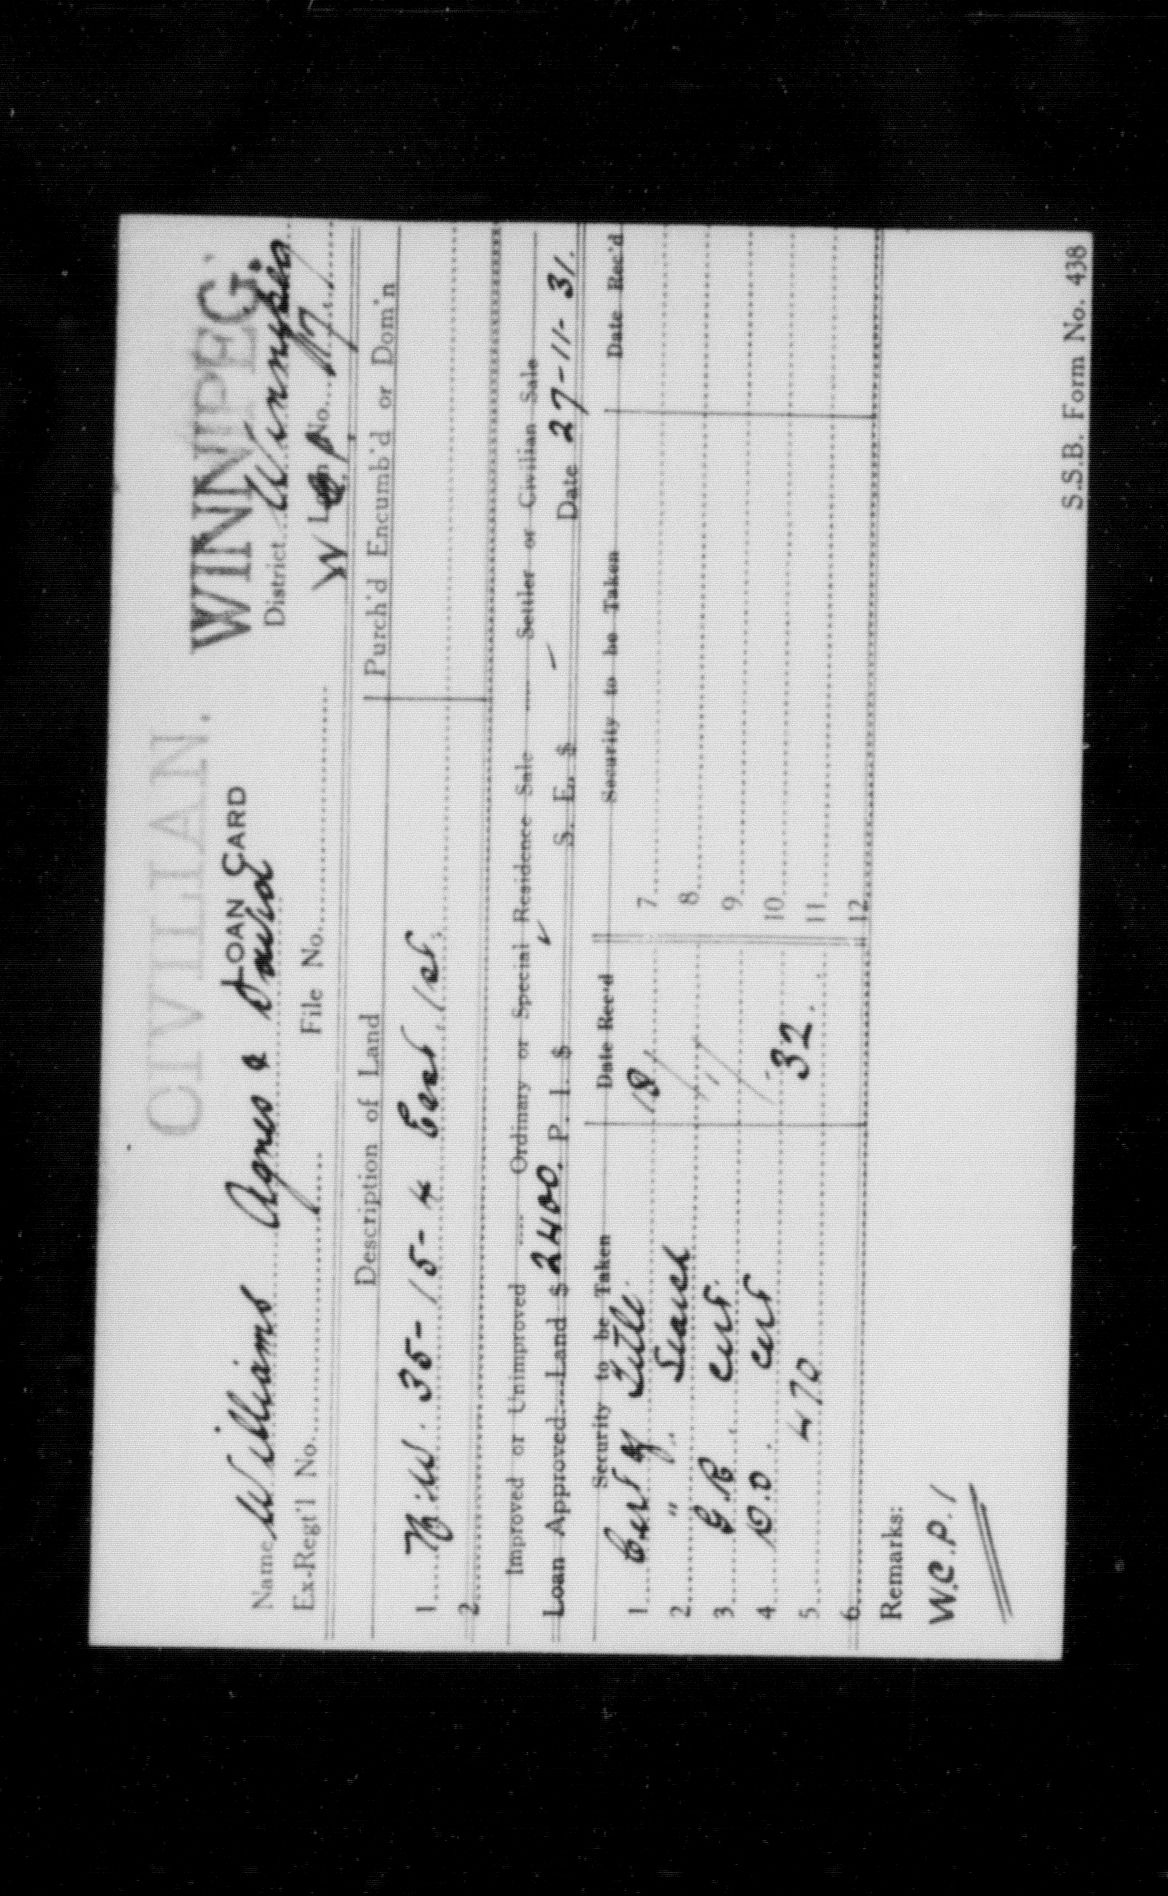 CIVILIAN. WINNIPEG.
LOAN CARD
Name Williams Agnes & David District Winnipeg
Ex-Regt'l No. File No. Loan No. 17
W C P 1.
Description of Land Purch'd Encumb'd or Dom'n
1 N.W. 35-15-4 East 1st.
2
Improved or Unimproved Ordinary or Special Residence Sale Settler or Civilian Sale
Loan Approved—Land $ 2400. P. I. $ S. E. $ — Date 27-11-31.
Security to be Taken Date Rec'd Security to be Taken Date Rec'd
1 Cert of Title 18/ 7
2 " " Search 8
3 G.R. Cert 11/ 9
4 Cert 10
5 470 32. 11
6 12
Remarks:
W.C.P. 1
S.S.B. Form No. 438